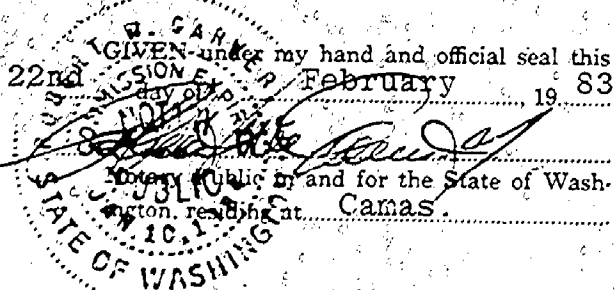 GIVEN under my hand and official seal this
22nd day of February, 19 83
Notary Public in and for the State of Wash-
ington, residing at Camas.
W. GARNER
COMMISSION EXPIRES
NOTARY
PUBLIC
JAN. 10, 1
STATE OF WASHINGTON